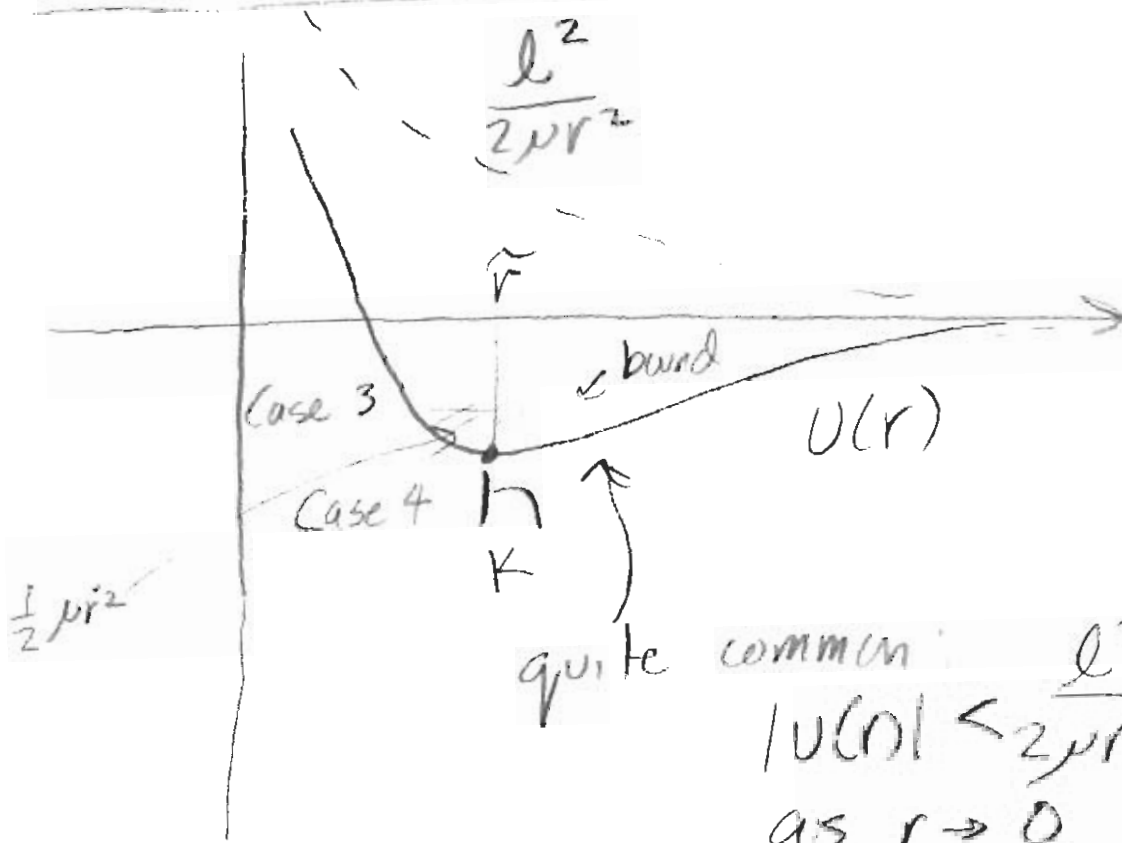 l²
2μr²
r̃
bound
Case 3
U(r)
Case 4
K
½ μṙ²
quite common:
|U(r)| < l²
2μr
as r → 0